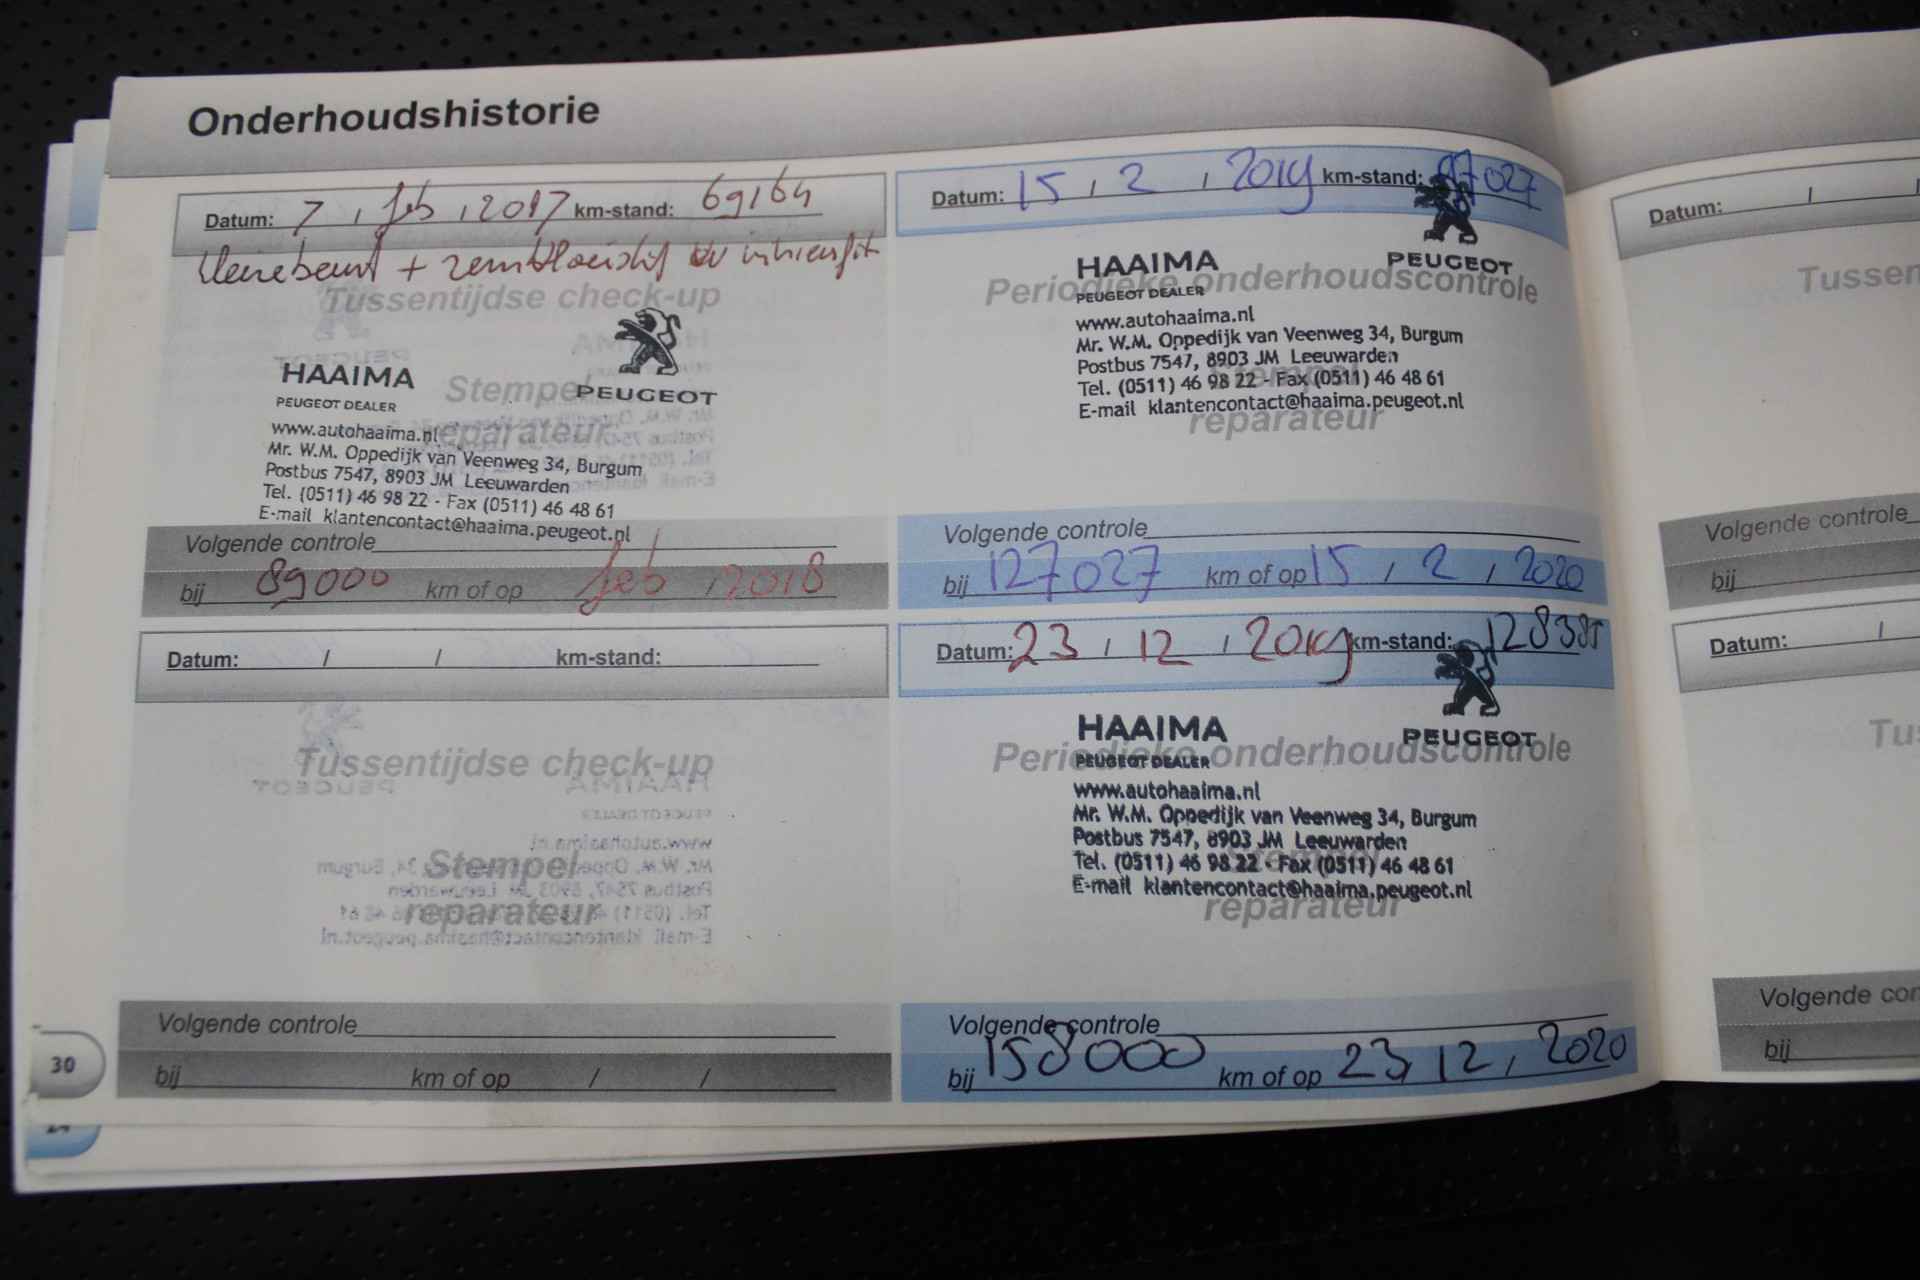 Onderhoudshistorie
Datum: 7 / feb / 2017 km-stand: 69164
+
Tussentijdse check-up
HAAIMA
PEUGEOT DEALER
PEUGEOT
Stempel
reparateur
www.autohaaima.nl
Mr. W.M. Oppedijk van Veenweg 34, Burgum
Postbus 7547, 8903 JM Leeuwarden
Tel. (0511) 46 98 22 - Fax (0511) 46 48 61
E-mail klantencontact@haaima.peugeot.nl
Volgende controle
bij 89000 km of op feb / 2018
Datum: / / km-stand:
Tussentijdse check-up
Stempel
reparateur
Volgende controle
bij km of op / /
30
Datum: 15 / 2 / 2019 km-stand: 97027
HAAIMA
PEUGEOT DEALER
PEUGEOT
Periodieke onderhoudscontrole
www.autohaaima.nl
Mr. W.M. Oppedijk van Veenweg 34, Burgum
Postbus 7547, 8903 JM Leeuwarden
Stempel
Tel. (0511) 46 98 22 - Fax (0511) 46 48 61
E-mail klantencontact@haaima.peugeot.nl
reparateur
Volgende controle
bij 127027 km of op 15 / 2 / 2020
Datum: 23 / 12 / 2019 km-stand: 128385
HAAIMA
PEUGEOT DEALER
PEUGEOT
Periodieke onderhoudscontrole
www.autohaaima.nl
Mr. W.M. Oppedijk van Veenweg 34, Burgum
Postbus 7547, 8903 JM Leeuwarden
Tel. (0511) 46 98 22 - Fax (0511) 46 48 61
Stempel
E-mail klantencontact@haaima.peugeot.nl
reparateur
Volgende controle
bij 158000 km of op 23 / 12 / 2020
Datum: /
Tussen
Volgende controle
bij
Datum: /
Tu
Volgende con
bij